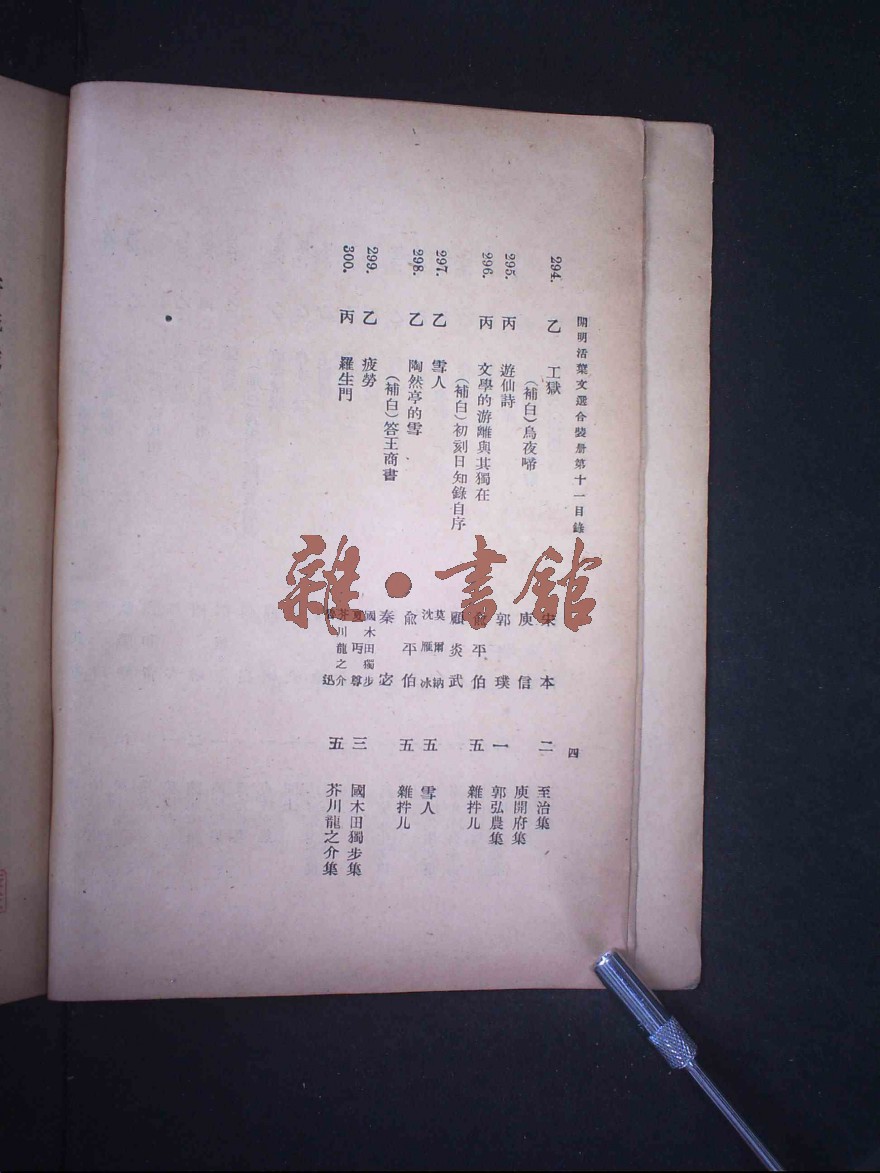 開明活葉文選合裝册第十一目錄 四
294. 乙 工獄 宋本 二 至治集
(補白)烏夜啼 庾信 庾開府集
295. 丙 遊仙詩 郭璞 一 郭弘農集
296. 丙 文學的游離與其獨在 俞平伯 五 雜拌儿
(補白)初刻日知錄自序 顧炎武
297. 乙 雪人 莫爾納 沈雁冰 五 雪人
298. 乙 陶然亭的雪 俞平伯 五 雜拌儿
(補白)答王商書 秦宓
299. 乙 疲勞 國木田獨步 夏丏尊 三 國木田獨步集
300. 丙 羅生門 芥川龍之介 魯迅 五 芥川龍之介集
雜·書館